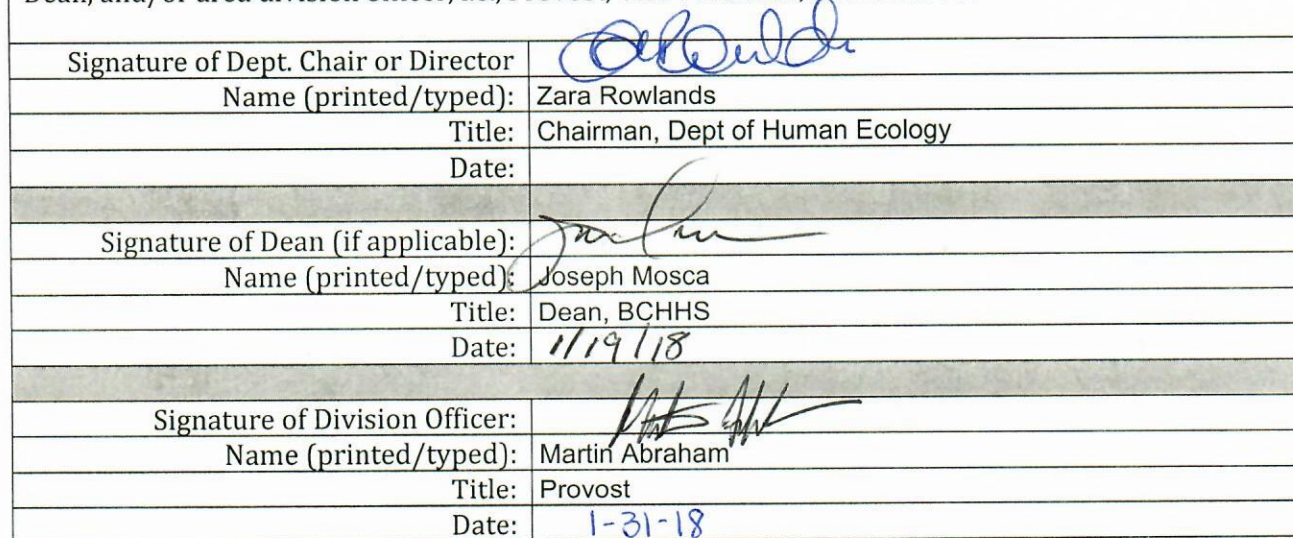 Dean, and/or area division officer, i.e., Provost, Vice
Signature of Dept. Chair or Director
Name (printed/typed): Zara Rowlands
Title: Chairman, Dept of Human Ecology
Date:
Signature of Dean (if applicable):
Name (printed/typed): Joseph Mosca
Title: Dean, BCHHS
Date: 1/19/18
Signature of Division Officer:
Name (printed/typed): Martin Abraham
Title: Provost
Date: 1-31-18